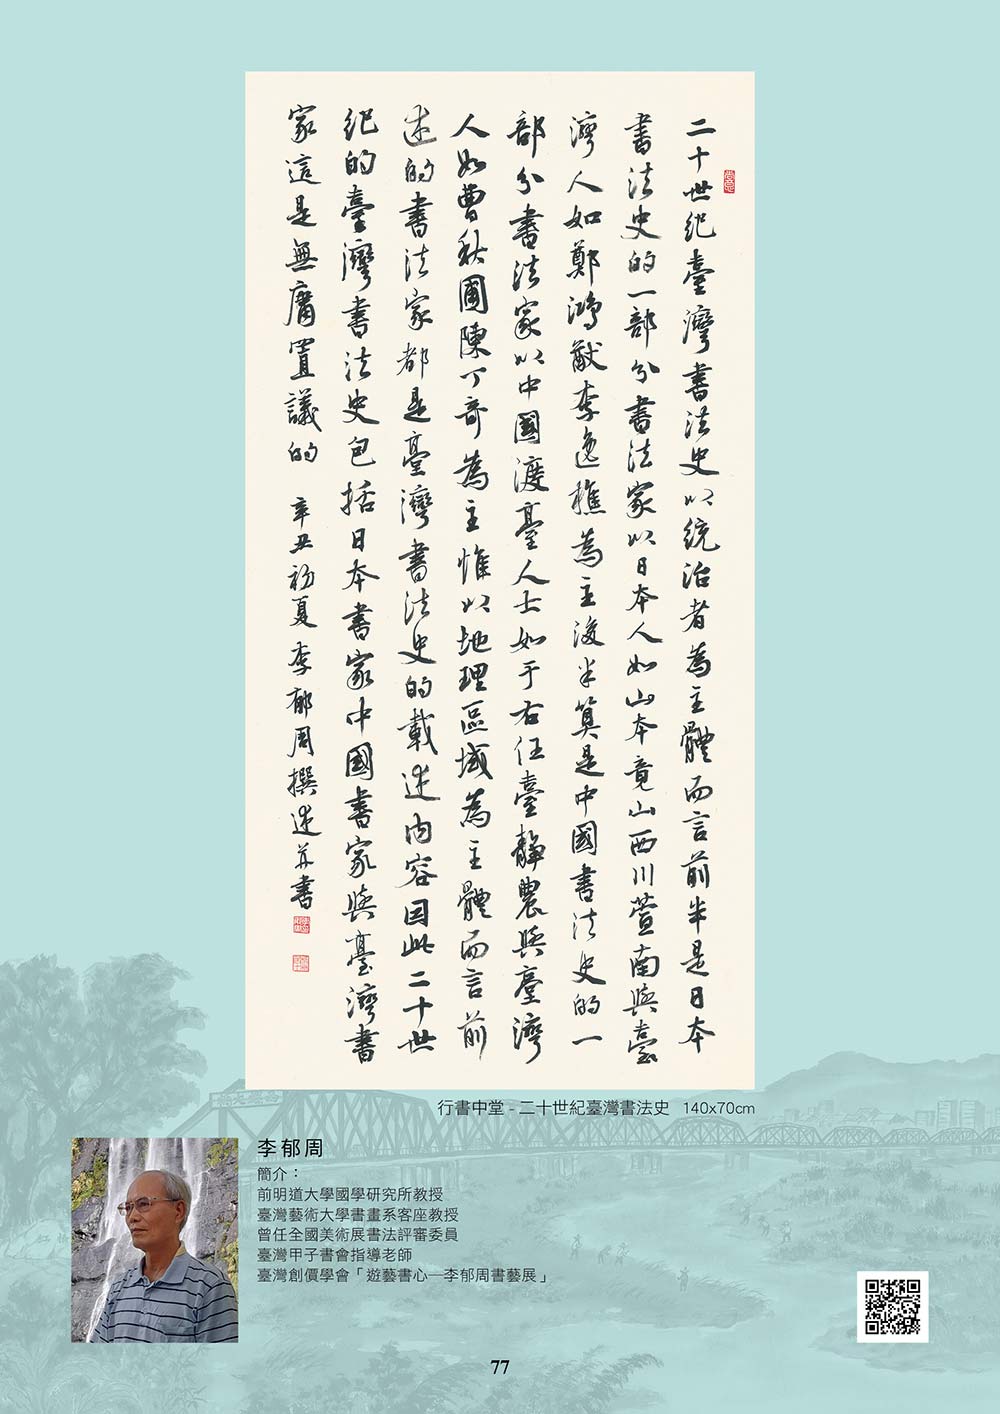 二十世紀臺灣書法史以統治者為主體而言前半是日本
書法史的一部分書法家以日本人如山本竟山西川萱南與臺
灣人如鄭鴻猷李逸樵為主後半算是中國書法史的一
部分書法家以中國渡臺人士如于右任臺靜農與臺灣
人如曹秋圃陳丁奇為主惟以地理區域為主體而言前
述的書法家都是臺灣書法史的載述內容因此二十世
紀的臺灣書法史包括日本書家中國書家與臺灣書
家這是無庸置議的 辛丑初夏李郁周撰述并書
行書中堂 - 二十世紀臺灣書法史 140x70cm
李郁周
簡介：
前明道大學國學研究所教授
臺灣藝術大學書畫系客座教授
曾任全國美術展書法評審委員
臺灣甲子書會指導老師
臺灣創價學會「遊藝書心—李郁周書藝展」
77